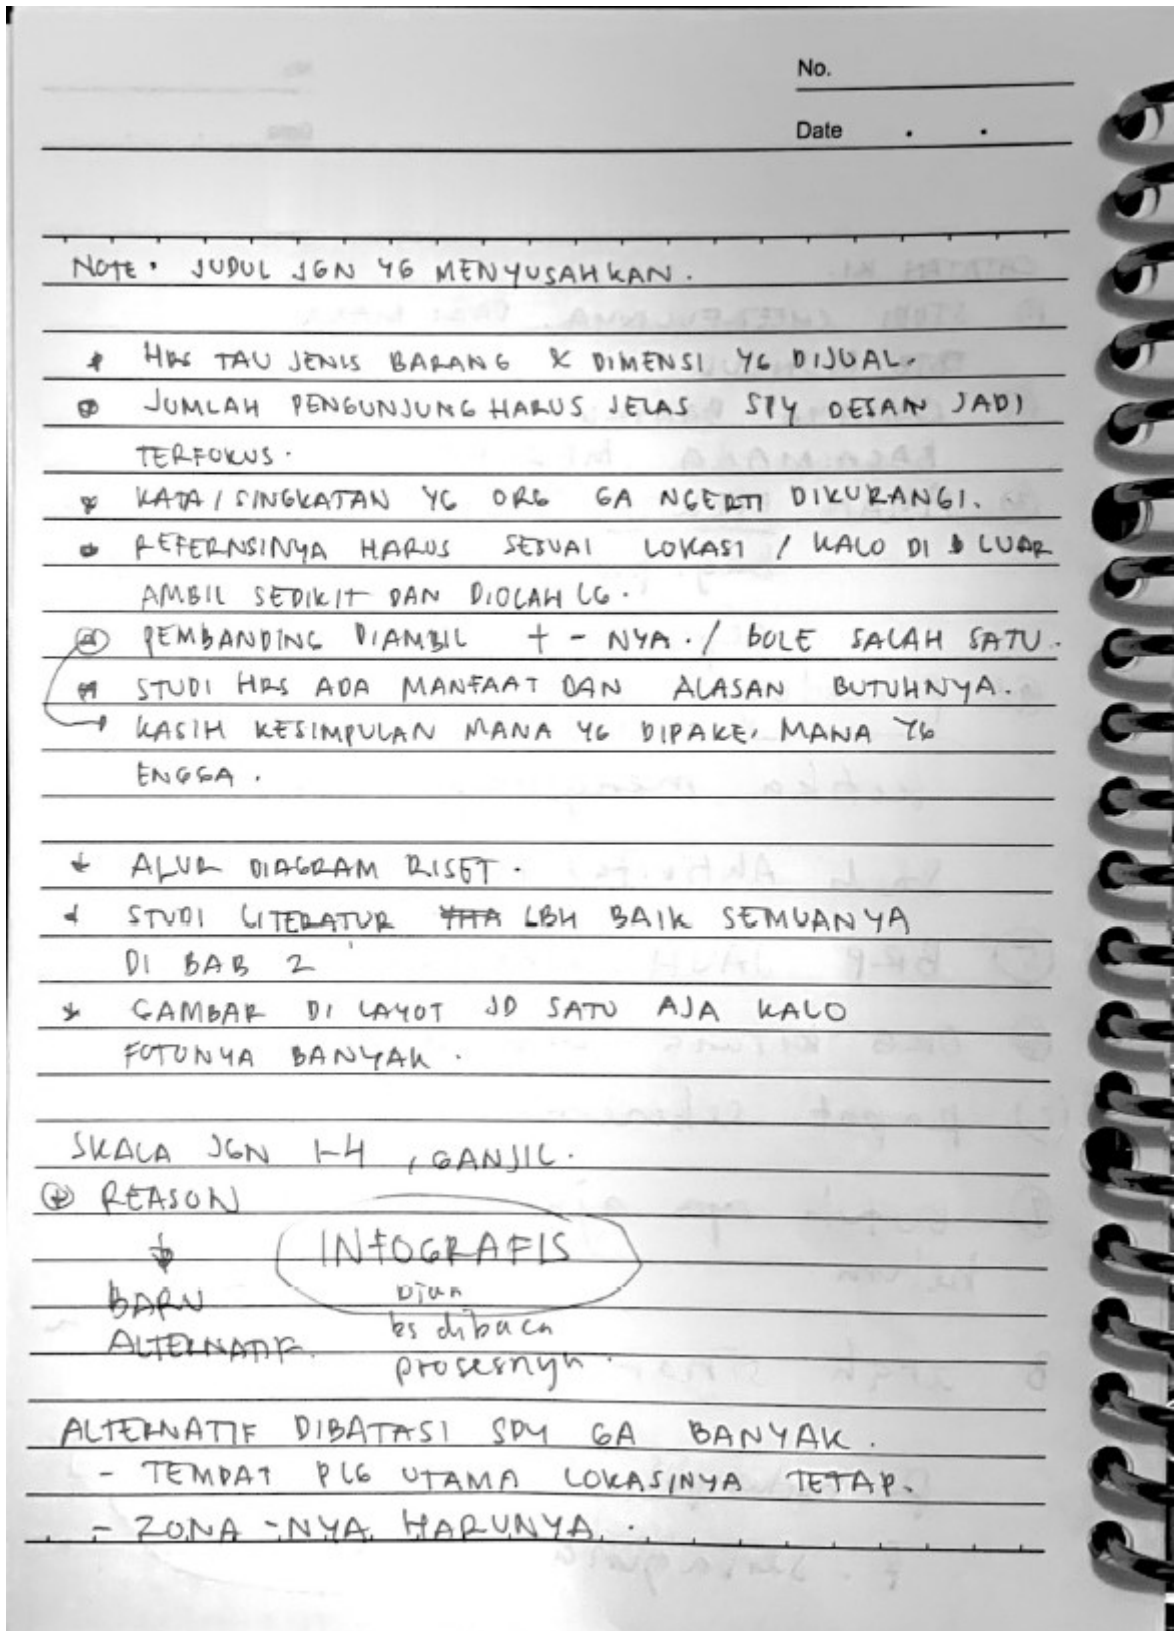 No.
Date . .
NOTE. JUDUL JGN YG MENYUSAHKAN.
* HRS TAU JENIS BARANG & DIMENSI YG DIJUAL.
* JUMLAH PENGUNJUNG HARUS JELAS SPY DESAN JADI
TERFOKUS.
* KATA / SINGKATAN YG ORG GA NGERTI DIKURANGI.
* REFERNSINYA HARUS SESUAI LOKASI / KALO DI LUAR
AMBIL SEDIKIT DAN DIOLAH LG.
* PEMBANDING DIAMBIL + - NYA. / BOLE SALAH SATU.
* STUDI HRS ADA MANFAAT DAN ALASAN BUTUHNYA.
→ KASIH KESIMPULAN MANA YG DIPAKE, MANA YG
ENGGA.
* ALUR DIAGRAM RISET.
* STUDI LITERATUR LBH BAIK SEMUANYA
DI BAB 2
* GAMBAR DI LAYOT JD SATU AJA KALO
FOTONYA BANYAK.
SKALA JGN 1-4, GANJIL.
* REASON
↓ INFOGRAFIS
BARU
bs dibaca
ALTERNATIF.
prosesnya.
ALTERNATIF DIBATASI SPY GA BANYAK.
- TEMPAT PLG UTAMA LOKASINYA TETAP.
- ZONA -NYA HARUNYA.